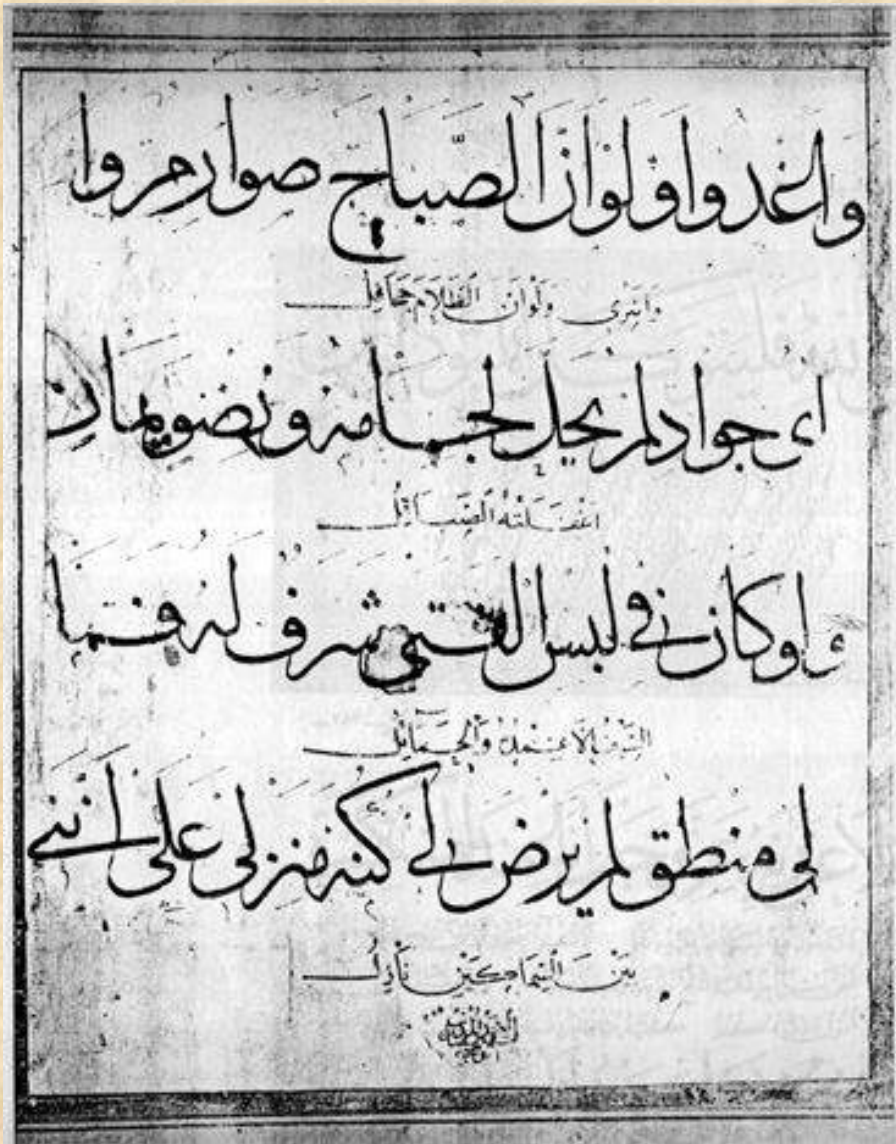 واغدوا ولو ان الصباح صوارم وا
واسرى ولو ان الظلام جحافل
اى جواد لم يحل لجامه ونضو يمان
اغفلته الصياقل
ولو كان في لبس الفتى شرف له فما
السيف الا غمده والحمائل
لى منطق لم يرض لى كنه منزلى على اننى
بين السماكين نازل